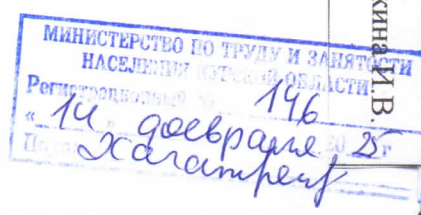 МИНИСТЕРСТВО ПО ТРУДУ И ЗАНЯТОСТИ
НАСЕЛЕНИЯ КУРСКОЙ ОБЛАСТИ
Регистрационный № 146
« 14 » февраля 20 25 г
кина И.В.